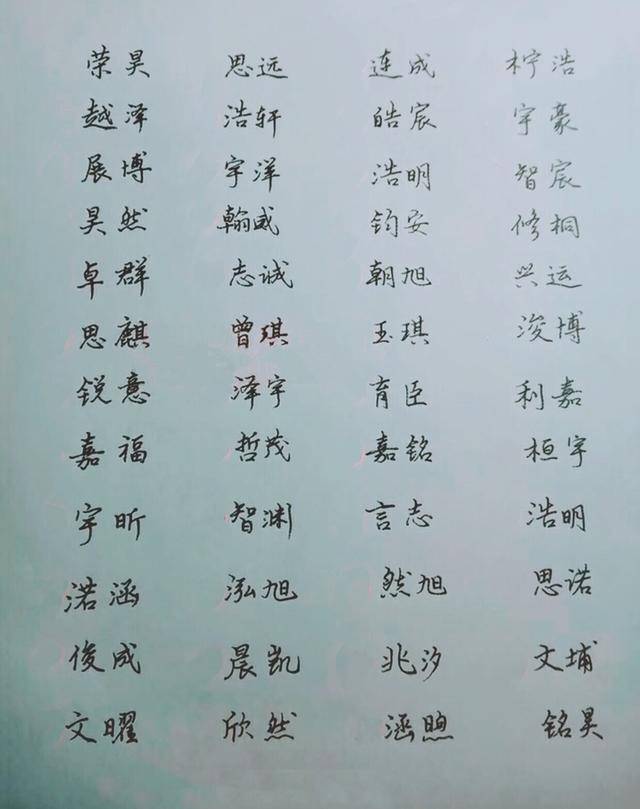 荣昊 思远 连成 柠浩
越泽 浩轩 皓宸 宇豪
展博 宇洋 浩明 智宸
昊然 翰威 钧安 修桐
卓群 志诚 朝旭 兴运
思麒 曾琪 玉琪 浚博
锐意 泽宇 育臣 利嘉
嘉福 哲茂 嘉铭 桓宇
宇昕 智渊 言志 浩明
渃涵 泓旭 然旭 思诺
俊成 晨凯 兆汐 文埔
文曜 欣然 涵煦 铭昊